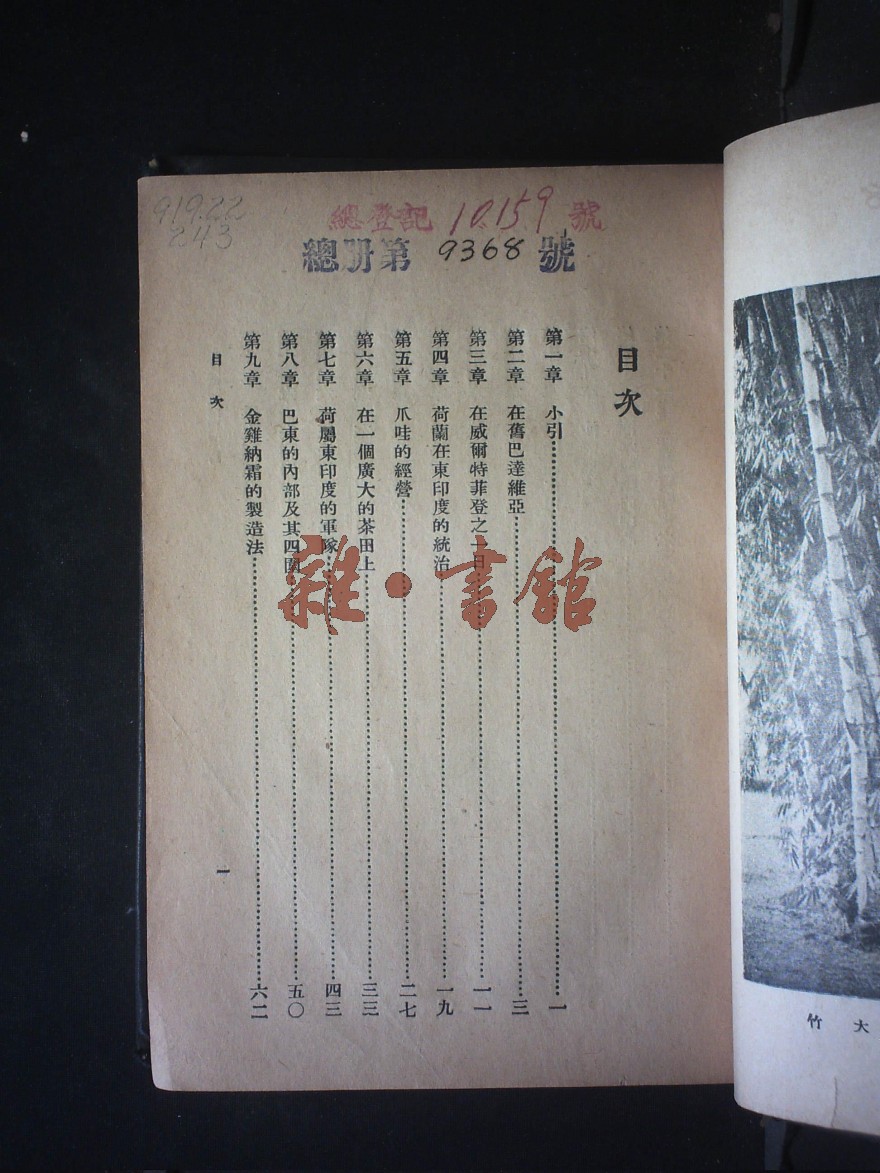 919.22
243
總登記 10.159 號
總册第 9368 號
目次
第一章 小引……一
第二章 在舊巴達維亞……三
第三章 在威爾特菲登之一日……一一
第四章 荷蘭在東印度的統治……一九
第五章 爪哇的經營……二七
第六章 在一個廣大的茶田上……三三
第七章 荷屬東印度的軍隊……四三
第八章 巴東的內部及其四圍……五〇
第九章 金雞納霜的製造法……六二
目次
一
雜·書館
大竹